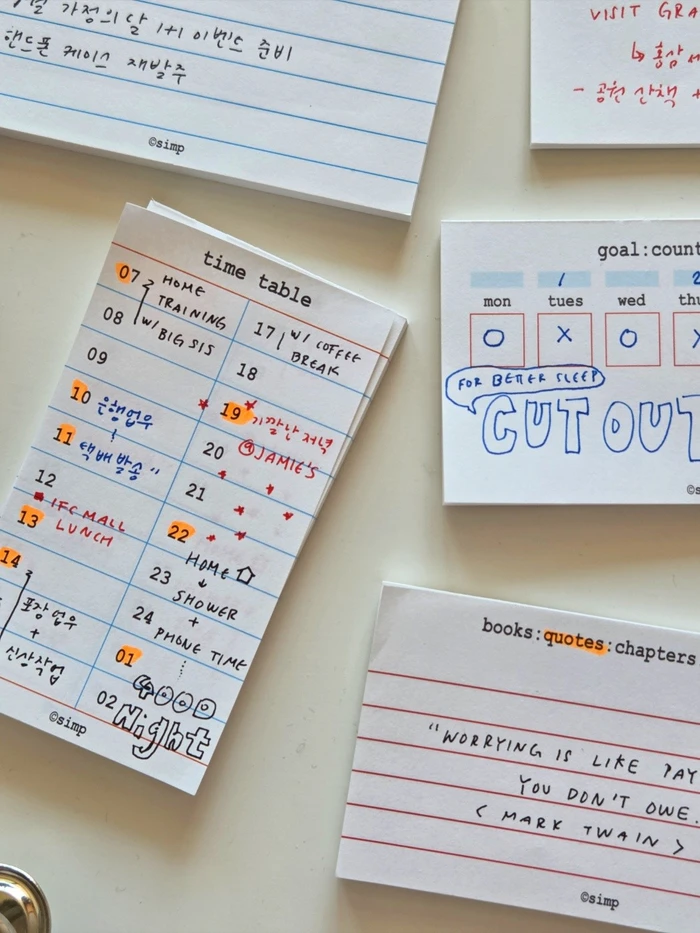 가정의 달 1+1 이벤트 준비
핸드폰 케이스 재발주
©simp
VISIT GRA
↳ 홍삼
- 공원 산책 +
time table
07 HOME
TRAINING
08 W/ BIG SIS
09
10 은행업무
11 택배 발송"
12
IFC MALL
13 LUNCH
14
포장 업무
+
신상작업
17 W/ COFFEE
BREAK
18
19 기깔난 저녁
20 @JAMIE'S
21
22
HOME
23 ↓
SHOWER
24 +
PHONE TIME
01
GOOD
02 Night
©simp
goal:count
1 2
mon tues wed thu
O X O
FOR BETTER SLEEP
CUT OUT
books:quotes:chapters
"WORRYING IS LIKE PAY
YOU DON'T OWE.
< MARK TWAIN >
©simp